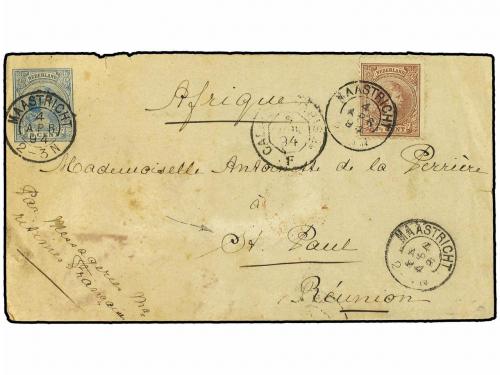 NEDERLAND
NEDERLAND
MAASTRICHT
4
APR
94
2-3N
MAASTRICHT
4
APR
94
Afrique
94
F
Mademoiselle Antoinette de la Perrière
à
St. Paul
Réunion
MAASTRICHT
4
APR
94
2
Par Messageries Ma
ritimes Françaises